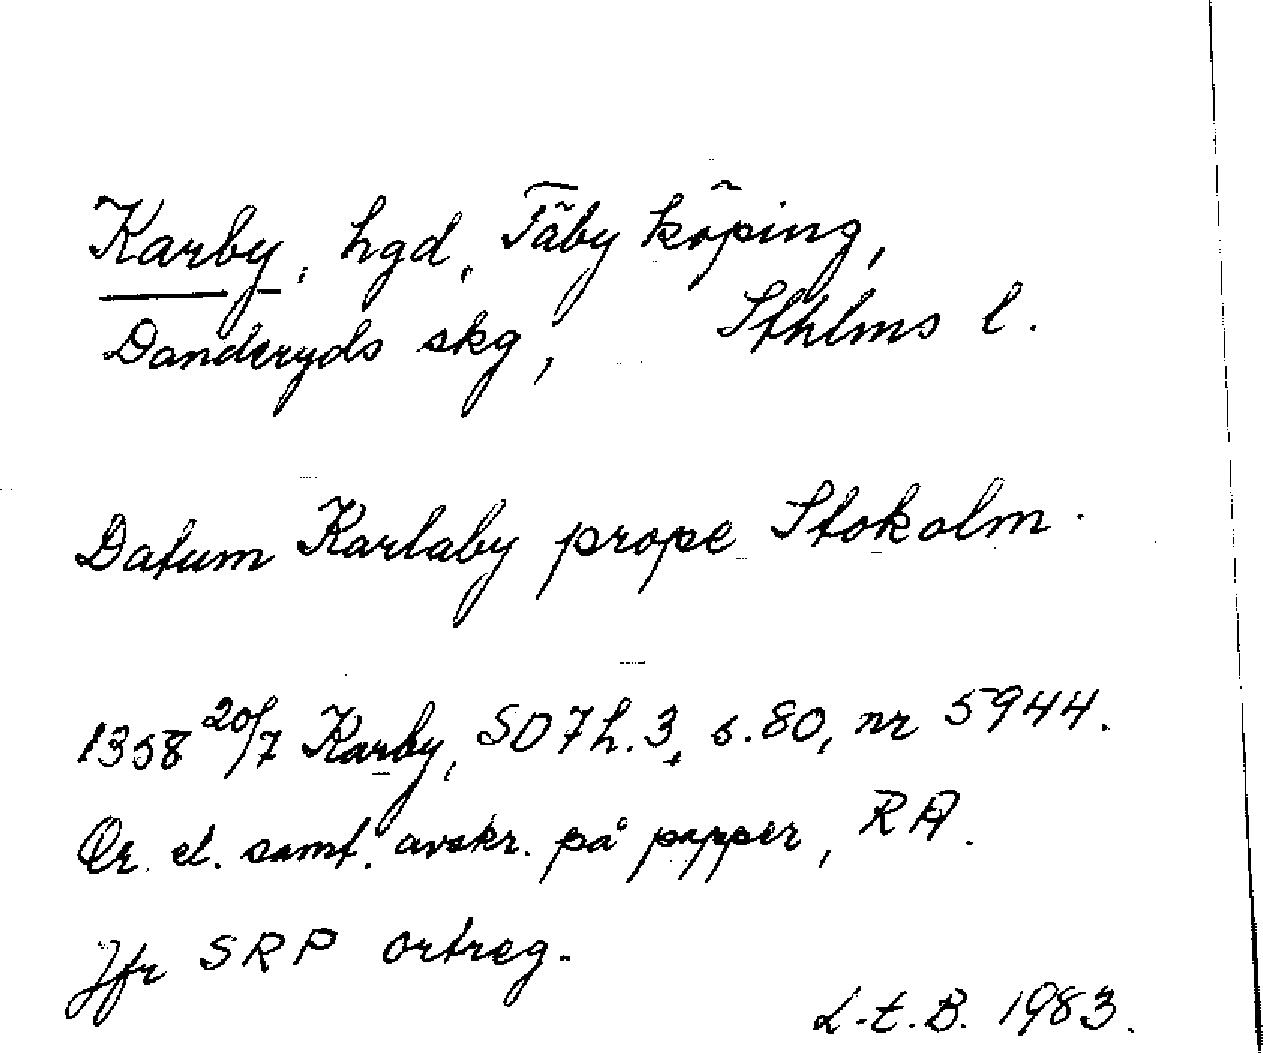 Karby, hgd, Täby köping,
Danderyds skg, Sthlms l.
Datum Karlaby prope Stokolm.
1358 20/7 Karby, SD 7 h. 3, s. 80, nr 5944.
Or. el. samt. avskr. på papper, RA.
Jfr SRP ortreg.
L.t.B. 1983.